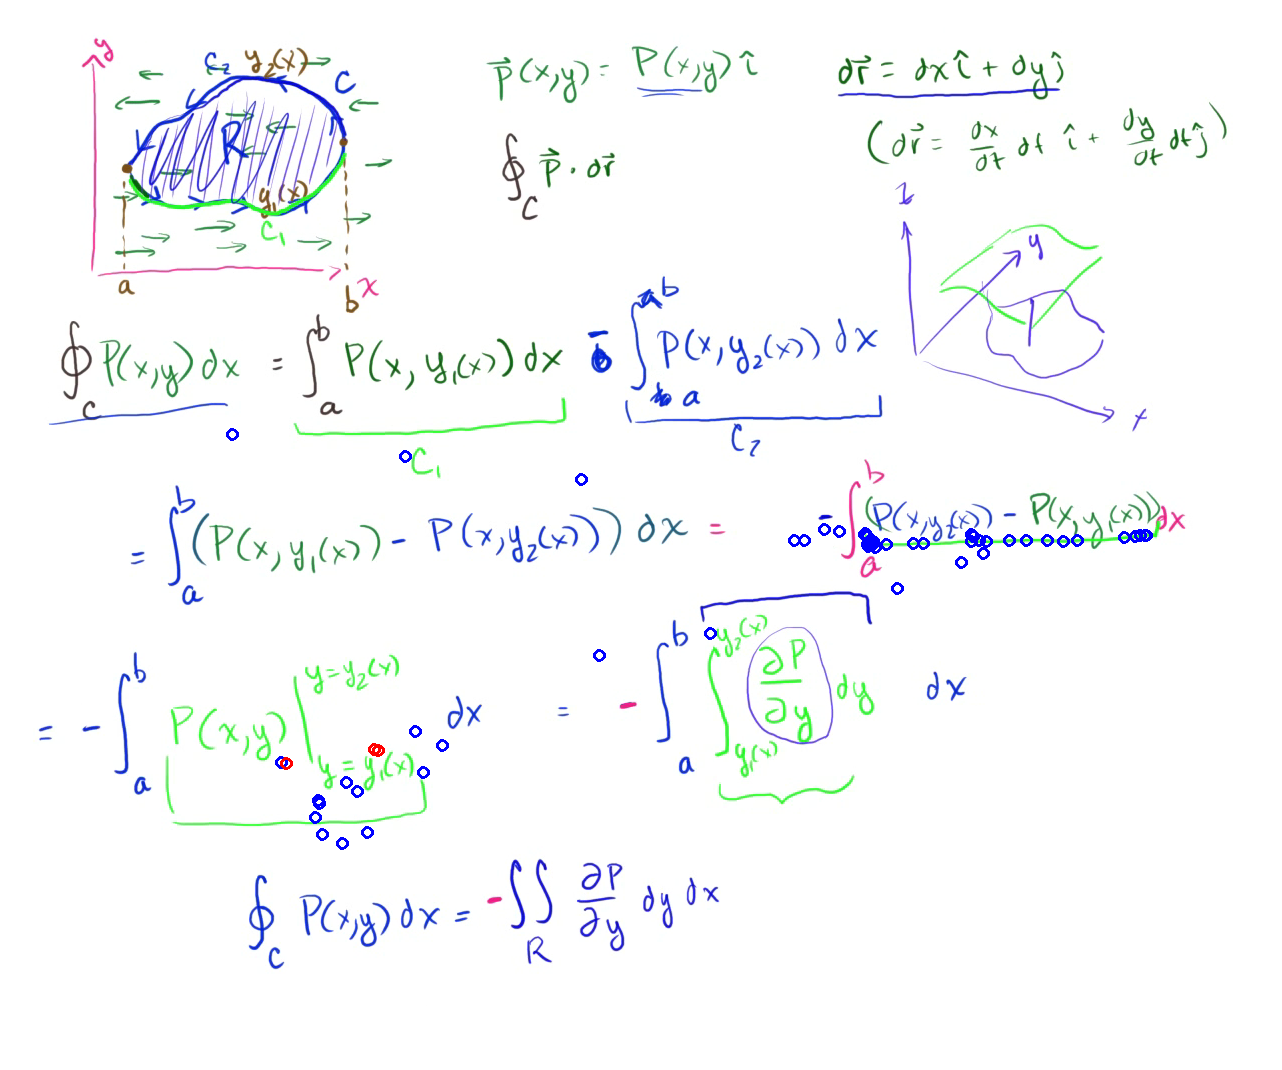 y
C₂ y₂(x) C
R
y₁(x)
C₁
a b x
P⃗(x,y) = P(x,y) î
∮_C P⃗ · dr⃗
dr⃗ = dx î + dy ĵ
(dr⃗ = dx/dt dt î + dy/dt dt ĵ)
z
y
x
∮_C P(x,y) dx = ∫_a^b P(x, y₁(x)) dx - ∫_a^b P(x, y₂(x)) dx
C₁ C₂
= ∫_a^b (P(x, y₁(x)) - P(x, y₂(x))) dx = - ∫_a^b (P(x, y₂(x)) - P(x, y₁(x))) dx
= - ∫_a^b P(x,y) |_{y = y₁(x)}^{y = y₂(x)} dx = - ∫_a^b ∫_{y₁(x)}^{y₂(x)} ∂P/∂y dy dx
∮_C P(x,y) dx = - ∬_R ∂P/∂y dy dx